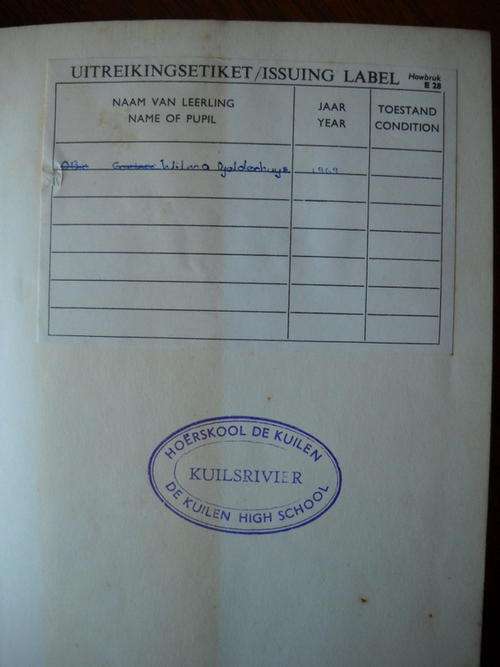 UITREIKINGSETIKET/ISSUING LABEL
Howbruk
E 28
NAAM VAN LEERLING
NAME OF PUPIL
JAAR
YEAR
TOESTAND
CONDITION
Wilma 1969
HOËRSKOOL DE KUILEN
KUILSRIVIER
DE KUILEN HIGH SCHOOL